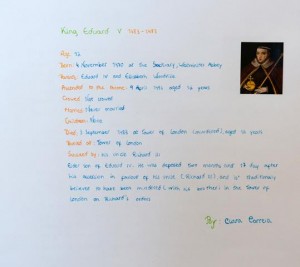 King Edward V 1483-1483
Age: 12
Born: 4 November 1470 at the Sanctuary, Westminster Abbey
Parents: Edward IV and Elizabeth Woodville
Ascended to the throne: 9 April 1483 aged 12 years
Crowned: Not crowned
Married: Never married
Children: None
Died: September 1483 at Tower of London (murdered), aged 12 years
Buried at: Tower of London
Succeeded by: his uncle Richard III
Elder son of Edward IV. He was deposed two months and 17 days after
his accession in favour of his uncle (Richard III), and is traditionally
believed to have been murdered with his brother in the Tower of
London on Richard's orders
By: Ciara Correa